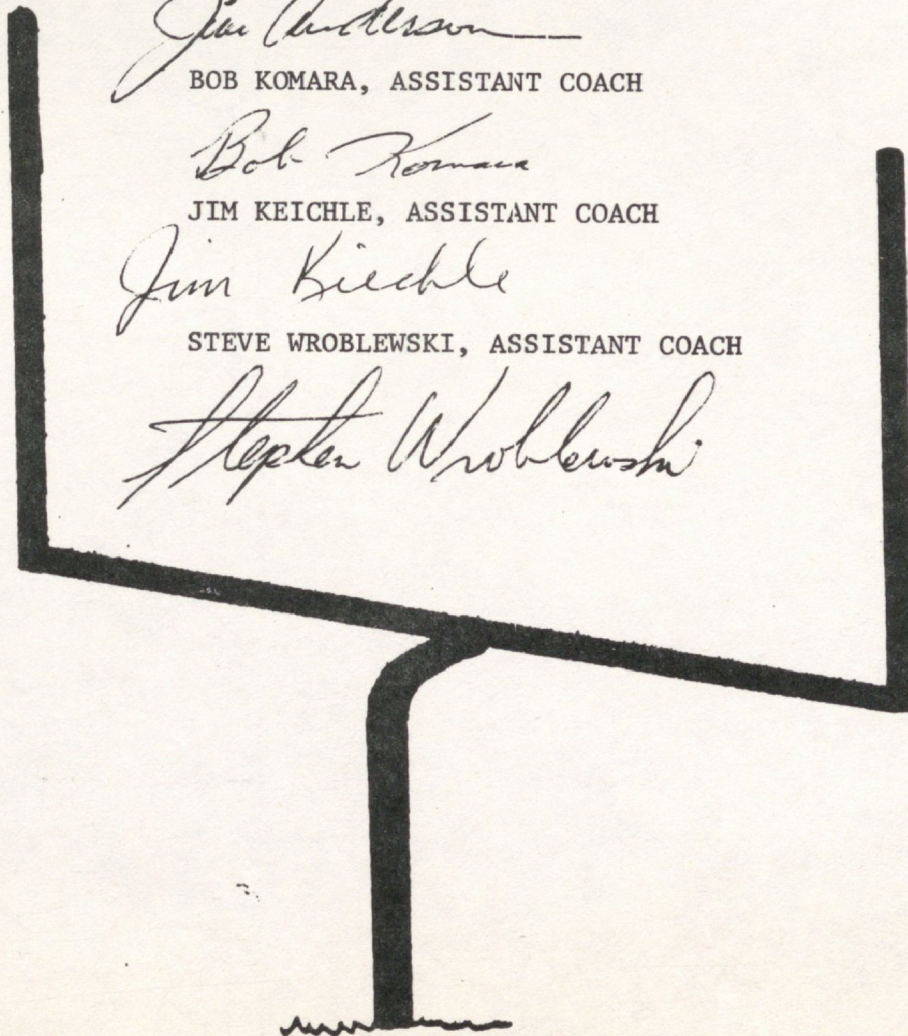 Jim Anderson
BOB KOMARA, ASSISTANT COACH
Bob Komara
JIM KEICHLE, ASSISTANT COACH
Jim Kiechle
STEVE WROBLEWSKI, ASSISTANT COACH
Stephen Wroblewski